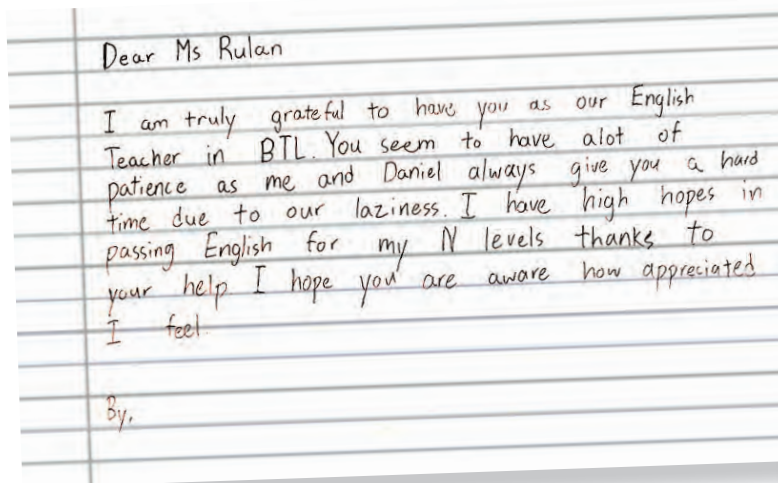 Dear Ms Rulan
I am truly grateful to have you as our English
Teacher in BTL. You seem to have alot of
patience as me and Daniel always give you a hard
time due to our laziness. I have high hopes in
passing English for my N levels thanks to
your help I hope you are aware how appreciated
I feel.
By,